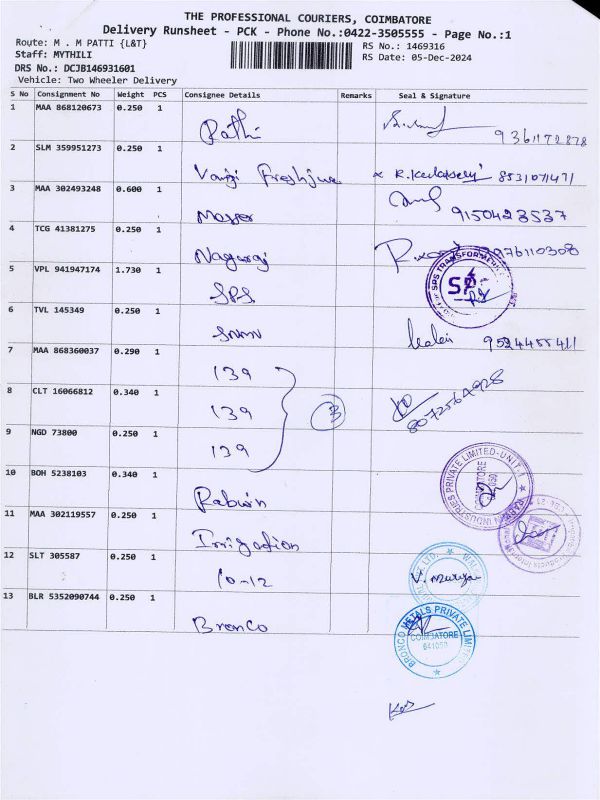 THE PROFESSIONAL COURIERS, COIMBATORE
Delivery Runsheet - PCK - Phone No.:0422-3505555 - Page No.:1
Route: M . M PATTI {L&T}
RS No.: 1469316
Staff: MYTHILI
RS Date: 05-Dec-2024
DRS No.: DCJB146931601
Vehicle: Two Wheeler Delivery
S No Consignment No Weight PCS Consignee Details Remarks Seal & Signature
1 MAA 868120673 0.250 1
Rathi 9361172878
2 SLM 359951273 0.250 1
8531071471
3 MAA 302493248 0.600 1
9150423537
4 TCG 41381275 0.250 1
Nagaraj
5 VPL 941947174 1.730 1
SPS
SPS TRANSFORMERS
6 TVL 145349 0.250 1
9524455411
7 MAA 868360037 0.290 1
139
8 CLT 16066812 0.340 1
139 3 8072564928
9 NGD 73800 0.250 1
139
INDUSTRIES PRIVATE LIMITED-UNIT-1
10 BOH 5238103 0.340 1
11 MAA 302119557 0.250 1
Irrigation
12 SLT 305587 0.250 1
10-12
13 BLR 5352090744 0.250 1
Bronco
BRONCO METALS PRIVATE LIMITED
COIMBATORE
641050